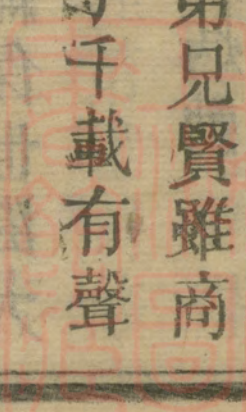 弟兄賢雖商
千載有聲